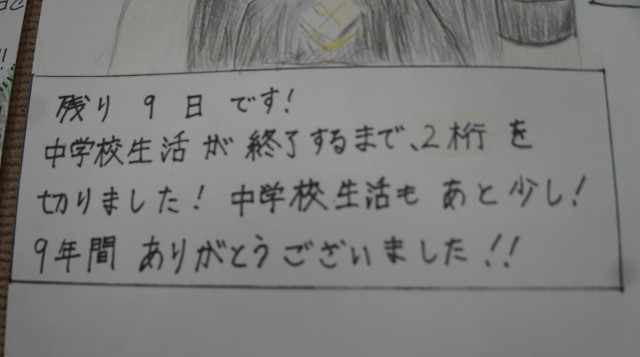 残り 9日です!
中学校生活が終了するまで、2桁を
切りました! 中学校生活も あと少し!
9年間 ありがとうございました!!